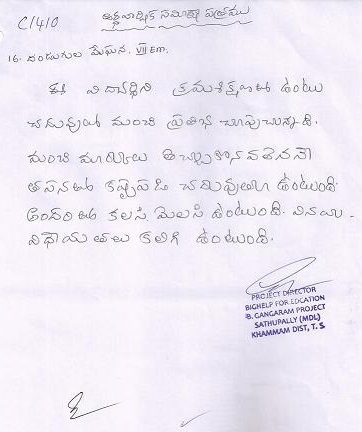 C/410
అర్ధవార్షిక సమీక్షా పత్రము
16. దండుగుల మేఘన, VII Em.
ఈ విద్యార్థిని క్రమశిక్షణతో ఉంటు
చదువులో మంచి ప్రతిభ చూపుచున్నది.
మంచి మార్కులు తెచ్చుకోవలెననే
తపనతో కష్టపడి చదువుతూ ఉంటుంది.
అందరితో కలసి మెలసి ఉంటుంది. వినయ -
విధేయతలు కలిగి ఉంటుంది.
PROJECT DIRECTOR
BIGHELP FOR EDCATION
B. GANGARAM PROJECT
SATHUPALLY (MDL)
KHAMMAM DIST, T. S